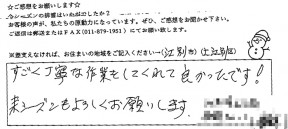 ☆ご感想をお願いします☆
今シーズンの排雪はいかがでしたか？
お客様の声が、私たちの原動力になっています。ぜひ、ご感想をお聞かせ下さい。
ご返信は郵送またはFAX(011-879-1951)にてお願い致します。
※差支えなければ、お住まいの地域をご記入ください…(江別市)(上江別区)
すごく丁寧な作業をしてくれて良かったです!
来シーズンもよろしくお願いします。